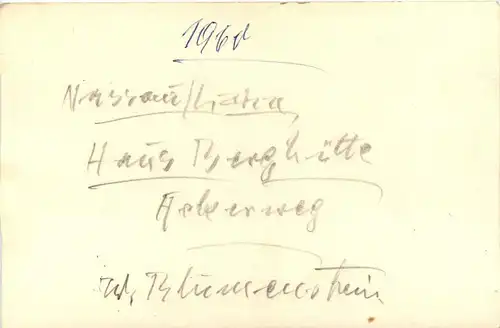 1960
Nassau/Lahn
Haus Berghütte
Ackerweg
Inh. Blumenstein